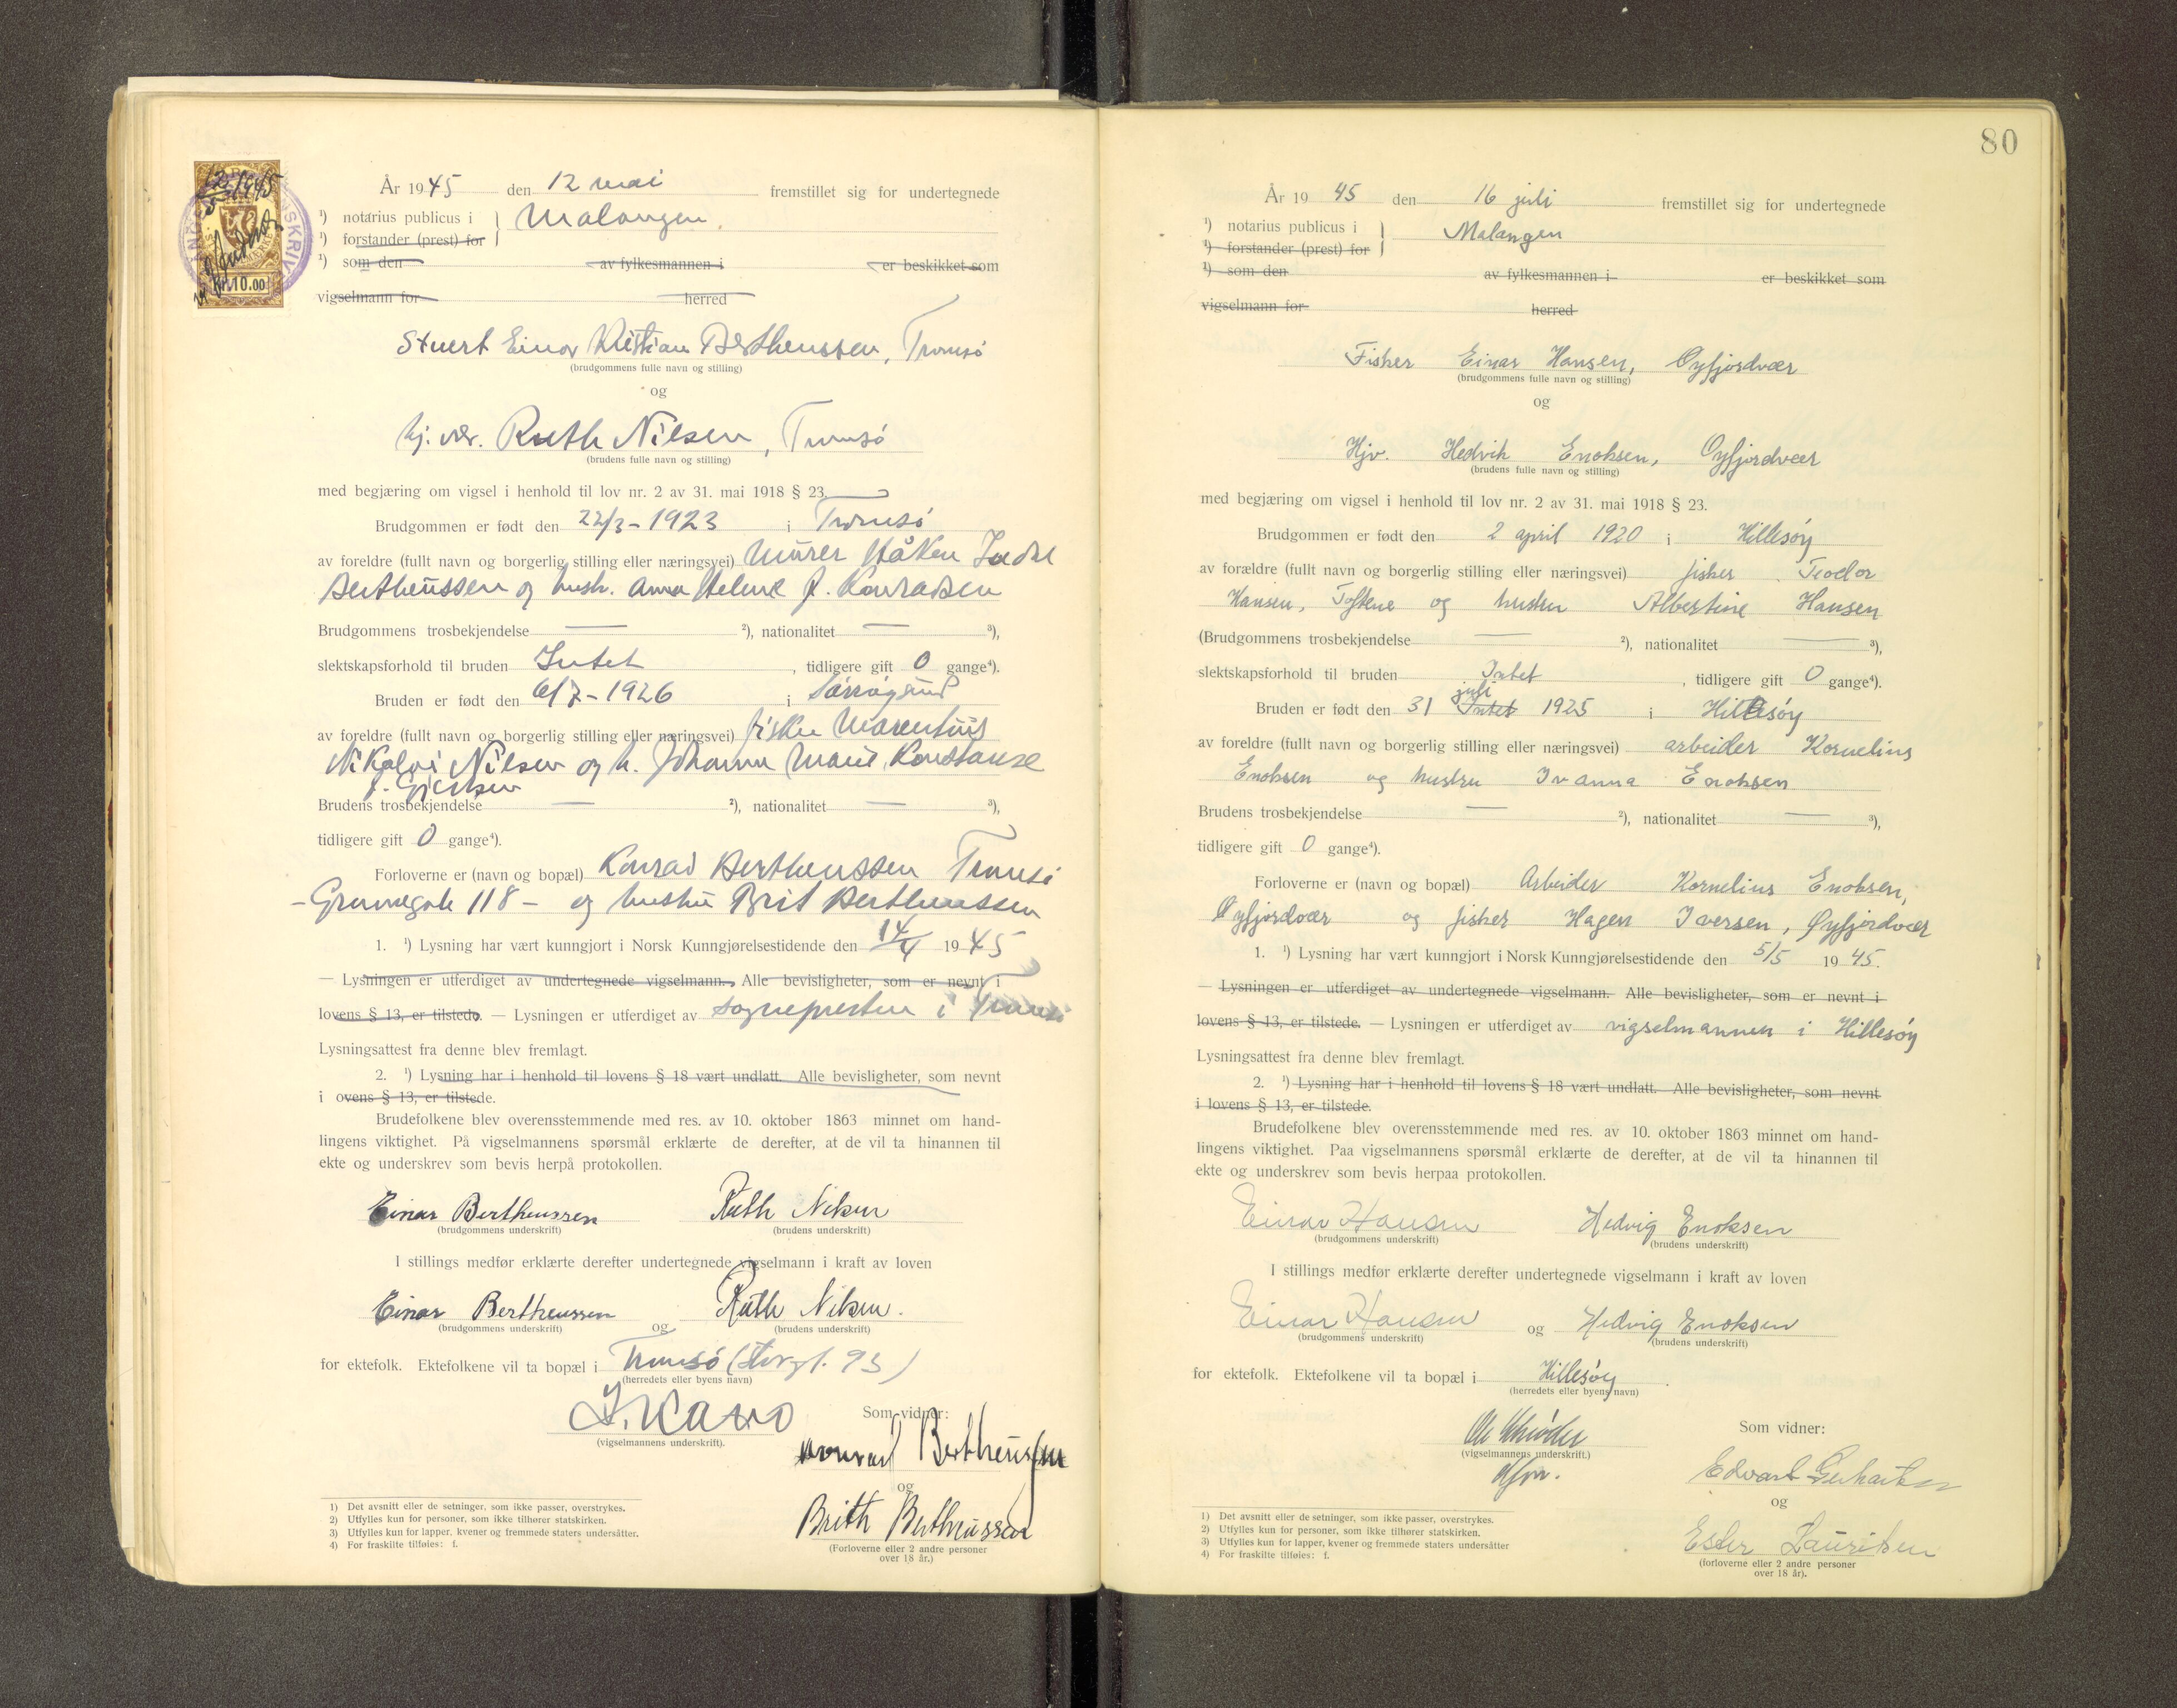 År 1945 den 12 mai fremstillet sig for undertegnede
¹) notarius publicus i } Malangen.
¹) forstander (prest) for
¹) som den av fylkesmannen i er beskikket som
vigselmann for herred
Kr. 10.00
Stuert Einar Kristian Bertheussen, Tromsö
(brudgommens fulle navn og stilling)
og
hj. vær. Ruth Nilsen, Tromsö
(brudens fulle navn og stilling)
med begjæring om vigsel i henhold til lov nr. 2 av 31. mai 1918 § 23.
Brudgommen er født den 22/3 - 1923 i Tromsö
av foreldre (fullt navn og borgerlig stilling eller næringsvei) Murer Håken
Bertheussen og hustr. Anna Helene f. Konradsen
Brudgommens trosbekjendelse — ²), nationalitet — ³),
slektskapsforhold til bruden Intet, tidligere gift 0 gange⁴).
Bruden er født den 6/7 - 1926 i
av foreldre (fullt navn og borgerlig stilling eller næringsvei) fisker Marentius
Nikolai Nilsen og h. Johanna Marie Konstanse
Brudens trosbekjendelse — ²), nationalitet — ³),
tidligere gift 0 gange⁴).
Forloverne er (navn og bopæl) Konrad Bertheussen Tromsö
- Grønnegate 118 - og hustru Brit Bertheussen
1. ¹) Lysning har vært kunngjort i Norsk Kunngjørelsestidende den 14/4 1945
— Lysningen er utferdiget av undertegnede vigselmann. Alle bevisligheter, som er nevnt i
lovens § 13, er tilstede. — Lysningen er utferdiget av sognepresten i Tromsö
Lysningsattest fra denne blev fremlagt.
2. ¹) Lysning har i henhold til lovens § 18 vært undlatt. Alle bevisligheter, som nevnt
i ovens § 13, er tilstede.
Brudefolkene blev overensstemmende med res. av 10. oktober 1863 minnet om hand-
lingens viktighet. På vigselmannens spørsmål erklærte de derefter, at de vil ta hinannen til
ekte og underskrev som bevis herpå protokollen.
Einar Bertheussen Ruth Nilsen
(brudgommens underskrift) (brudens underskrift)
I stillings medfør erklærte derefter undertegnede vigselmann i kraft av loven
Einar Bertheussen og Ruth Nilsen.
(brudgommens underskrift) (brudens underskrift)
for ektefolk. Ektefolkene vil ta bopæl i Tromsö (Storgt. 93)
(herredets eller byens navn)
Som vidner:
(vigselmannens underskrift).
Konrad Bertheussen
og
Brith Bertheussen
(Forloverne eller 2 andre personer
over 18 år.)
1) Det avsnitt eller de setninger, som ikke passer, overstrykes.
2) Utfylles kun for personer, som ikke tilhører statskirken.
3) Utfylles kun for lapper, kvener og fremmede staters undersåtter.
4) For fraskilte tilføies: f.
80
År 1945 den 16 juli fremstillet sig for undertegnede
¹) notarius publicus i } Malangen
¹) forstander (prest) for
¹) som den av fylkesmannen i er beskikket som
vigselmann for herred
Fisker Einar Hansen, Øyfjordvær
(brudgommens fulle navn og stilling)
og
Hjv. Hedvik Enoksen, Øyfjordvær
(brudens fulle navn og stilling)
med begjæring om vigsel i henhold til lov nr. 2 av 31. mai 1918 § 23.
Brudgommen er født den 2 april 1920 i Hillesøy
av forældre (fullt navn og borgerlig stilling eller næringsvei) fisker Teodor
Hansen, Toftene og hustru Albertine Hansen
(Brudgommens trosbekjendelse — ²), nationalitet — ³),
slektskapsforhold til bruden Intet, tidligere gift 0 gange⁴).
juli
Bruden er født den 31 Intet 1925 i Hillesøy
av foreldre (fullt navn og borgerlig stilling eller næringsvei) arbeider Kornelius
Enoksen og hustru Ivanna Enoksen
Brudens trosbekjendelse — ²), nationalitet — ³),
tidligere gift 0 gange⁴).
Forloverne er (navn og bopæl) Arbeider Kornelius Enoksen,
Øyfjordvær og fisker Hagen Iversen, Øyfjordvær
1. ¹) Lysning har vært kunngjort i Norsk Kunngjørelsestidende den 5/5 1945.
— Lysningen er utferdiget av undertegnede vigselmann. Alle bevisligheter, som er nevnt i
lovens § 13, er tilstede. — Lysningen er utferdiget av vigselmannen i Hillesøy
Lysningsattest fra denne blev fremlagt.
2. ¹) Lysning har i henhold til lovens § 18 vært undlatt. Alle bevisligheter, som nevnt
i lovens § 13, er tilstede.
Brudefolkene blev overensstemmende med res. av 10. oktober 1863 minnet om hand-
lingens viktighet. Paa vigselmannens spørsmål erklærte de derefter, at de vil ta hinannen til
ekte og underskrev som bevis herpaa protokollen.
Einar Hansen Hedvig Enoksen
(brudgommens underskrift) (brudens underskrift)
I stillings medfør erklærte derefter undertegnede vigselmann i kraft av loven
Einar Hansen og Hedvig Enoksen
(brudgommens underskrift) (brudens underskrift)
for ektefolk. Ektefolkene vil ta bopæl i Hillesøy.
(herredets eller byens navn)
Som vidner:
Ole Schrøder
(vigselmannens underskrift.)
Edvart Gerhartsen
og
Ester Lauritsen
(forloverne eller 2 andre personer
over 18 år).
1) Det avsnitt eller de setninger, som ikke passer, overstrykes.
2) Utfylles kun for personer, som ikke tilhører statskirken.
3) Utfylles kun for lapper, kvener og fremmede staters undersåtter
4) For fraskilte tilføies: f.